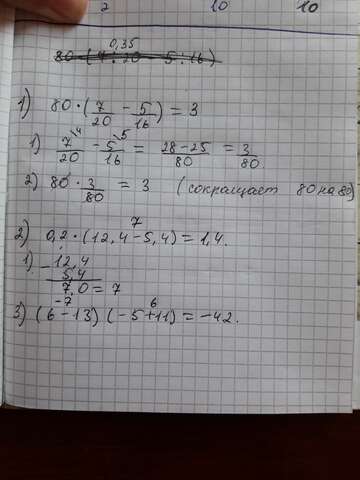 2 10 10
0,35
80 · (7 : 20 - 5 : 16)
1) 80 · (7/20 - 5/16) = 3
1) 7\4/20 - 5\5/16 = 28-25/80 = 3/80
2) 80 · 3/80 = 3 (сокращает 80 на 80)
7
2) 0,2 · (12,4 - 5,4) = 1,4.
1) - 12,4
5,4
7,0 = 7
-7 6
3) (6 - 13) (-5 + 11) = -42.